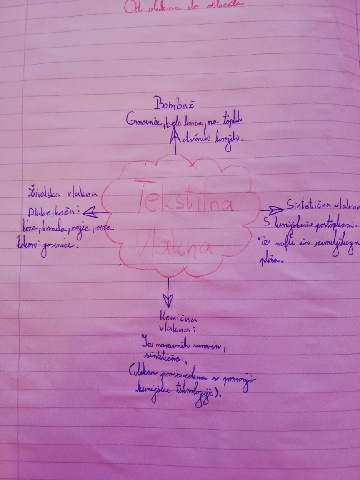 Od vlakna do oblačila
Bombaž
Grmovnice, bele barve, na toplo
Tekstilna
vlakna
Živalska vlakna
Dlake koža:
koza, kamela, zajec, ovca
Sintetična vlakna
S kemijskimi postopkami
iz nafte in zemeljskega
plina.
Kemična
vlakna:
Iz naravnih surovin,
sintetična.
(vlakna proizvedena s pomočjo
kemijske tehnologije).